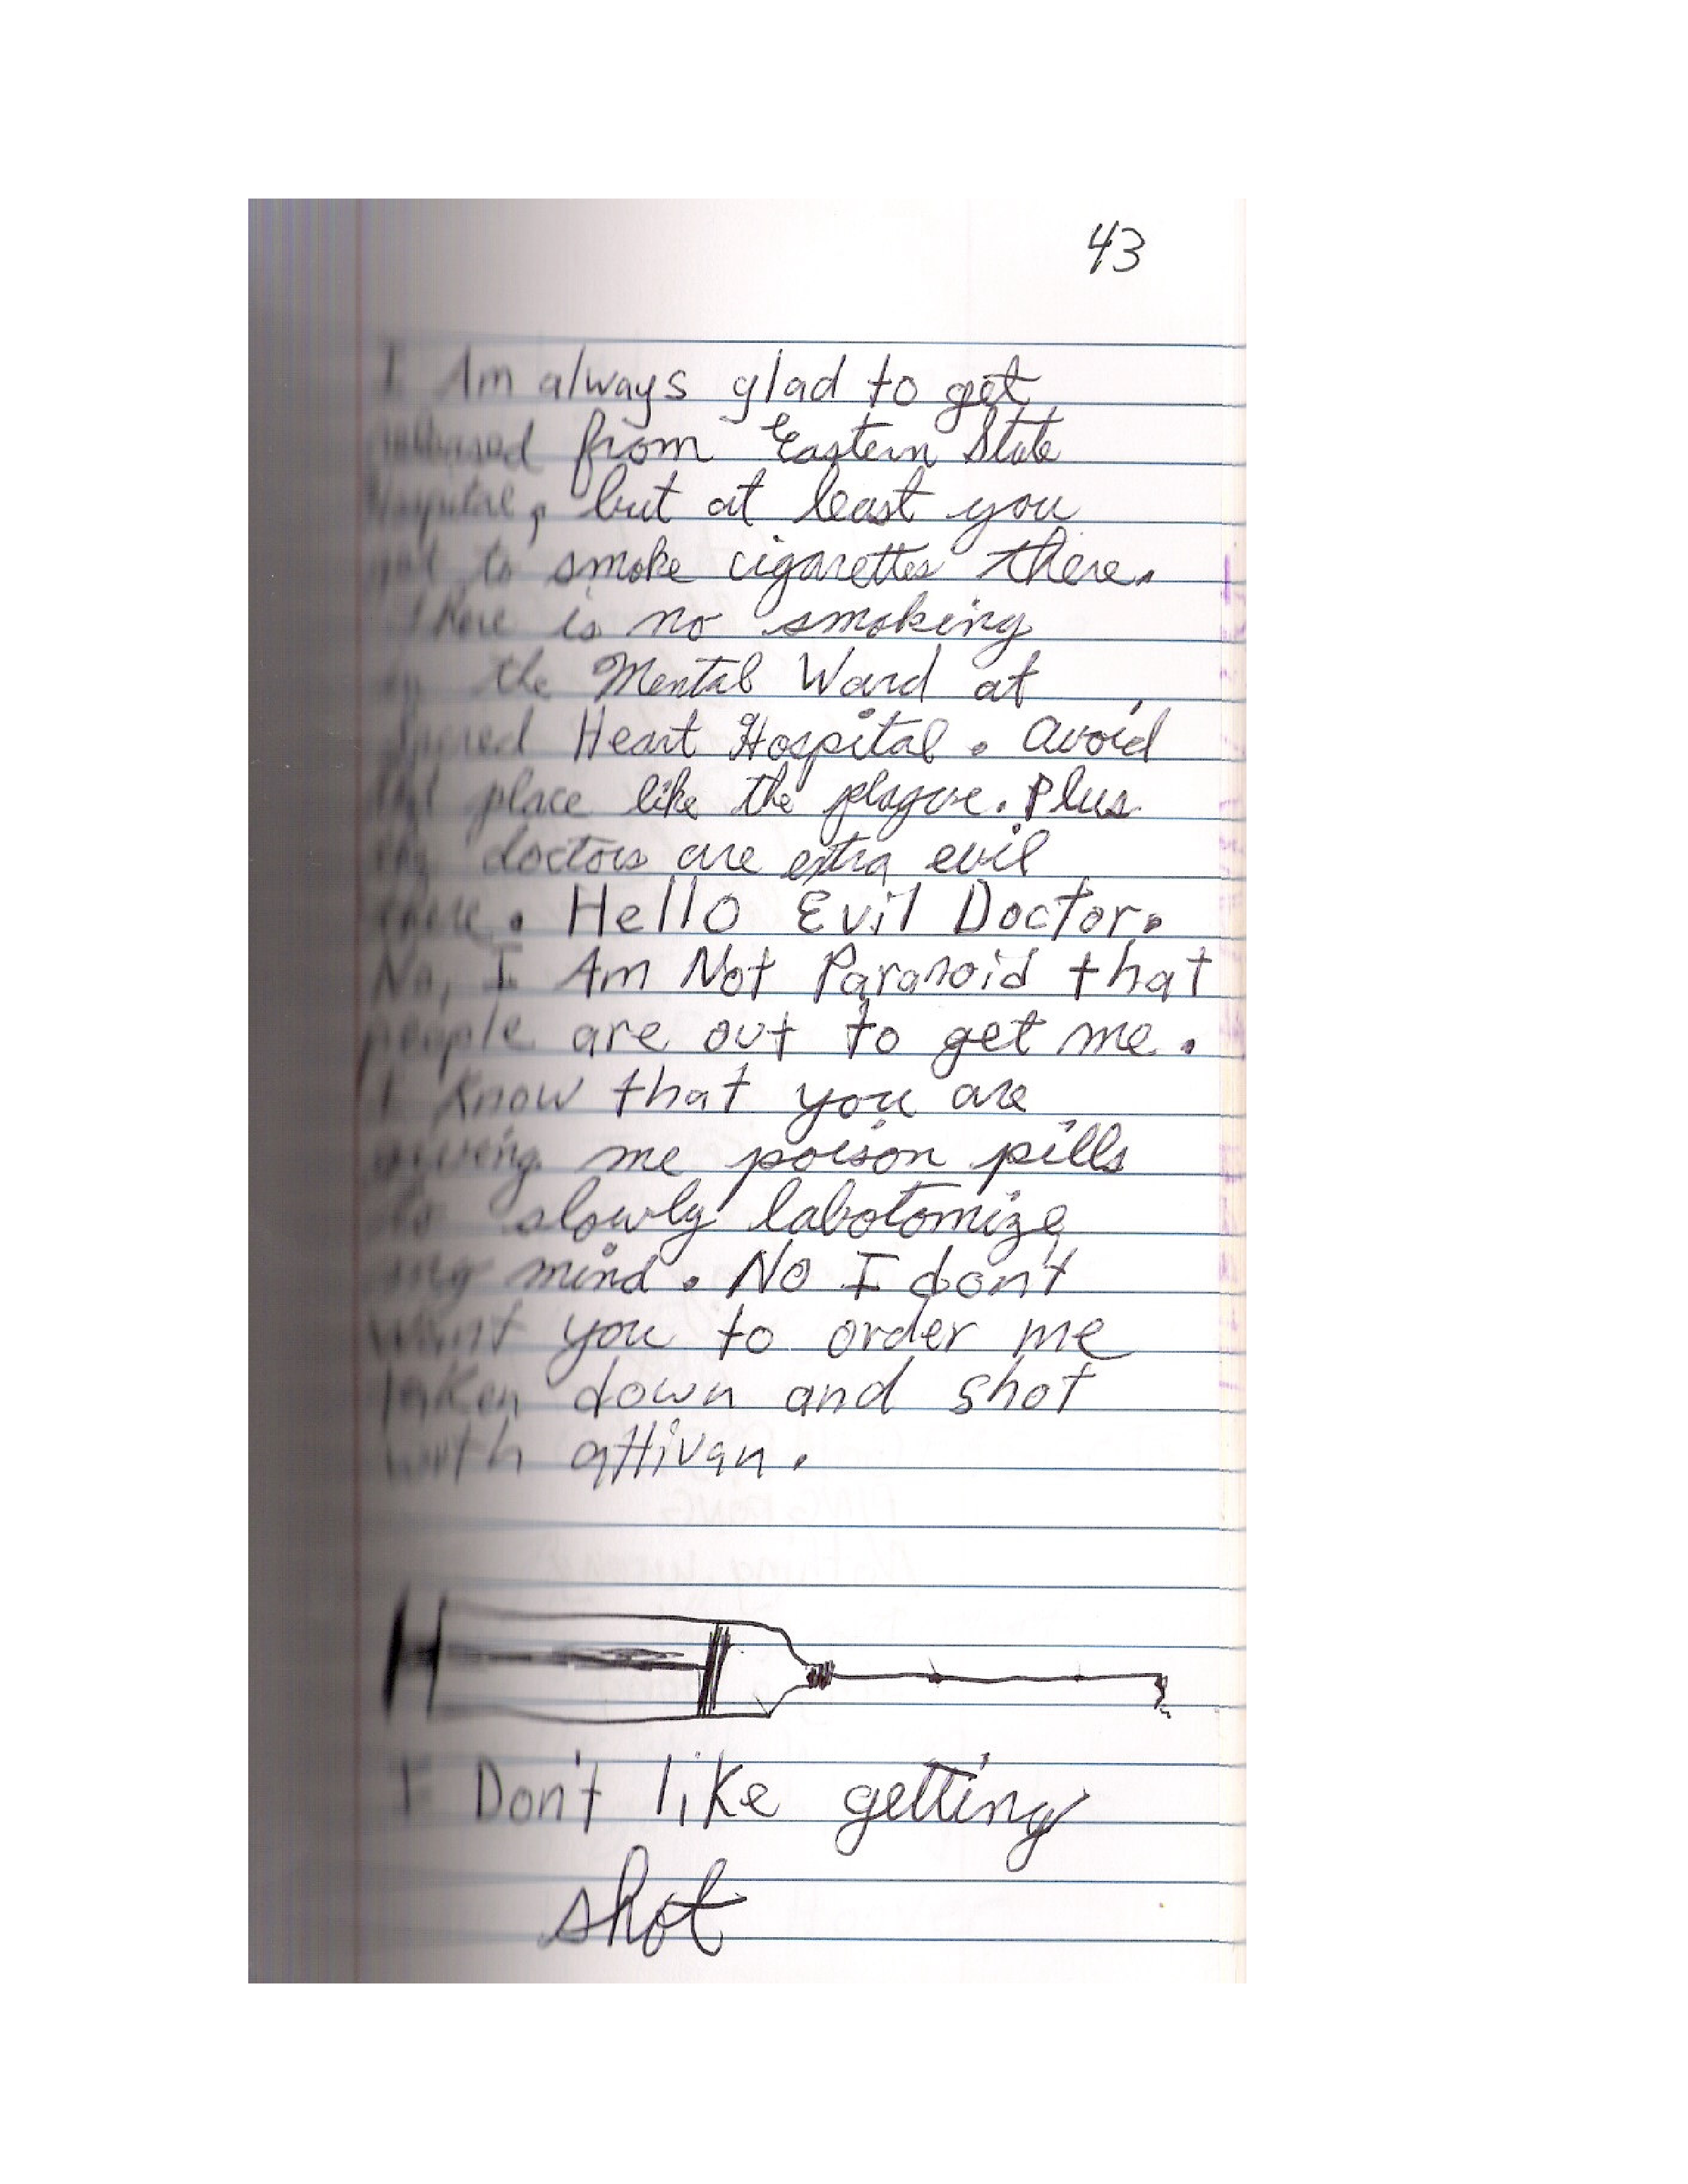 43
I Am always glad to get
released from Eastern State
Hospital, but at least you
get to smoke cigarettes there.
There is no smoking
in the Mental Ward at
Sacred Heart Hospital. Avoid
that place like the plague. Plus
the doctors are extra evil
there. Hello Evil Doctor.
No, I Am Not Paranoid that
people are out to get me.
I know that you are
giving me poison pills
to slowly labotomize
my mind. No I don't
want you to order me
taken down and shot
with attivan.
I Don't like getting
shot